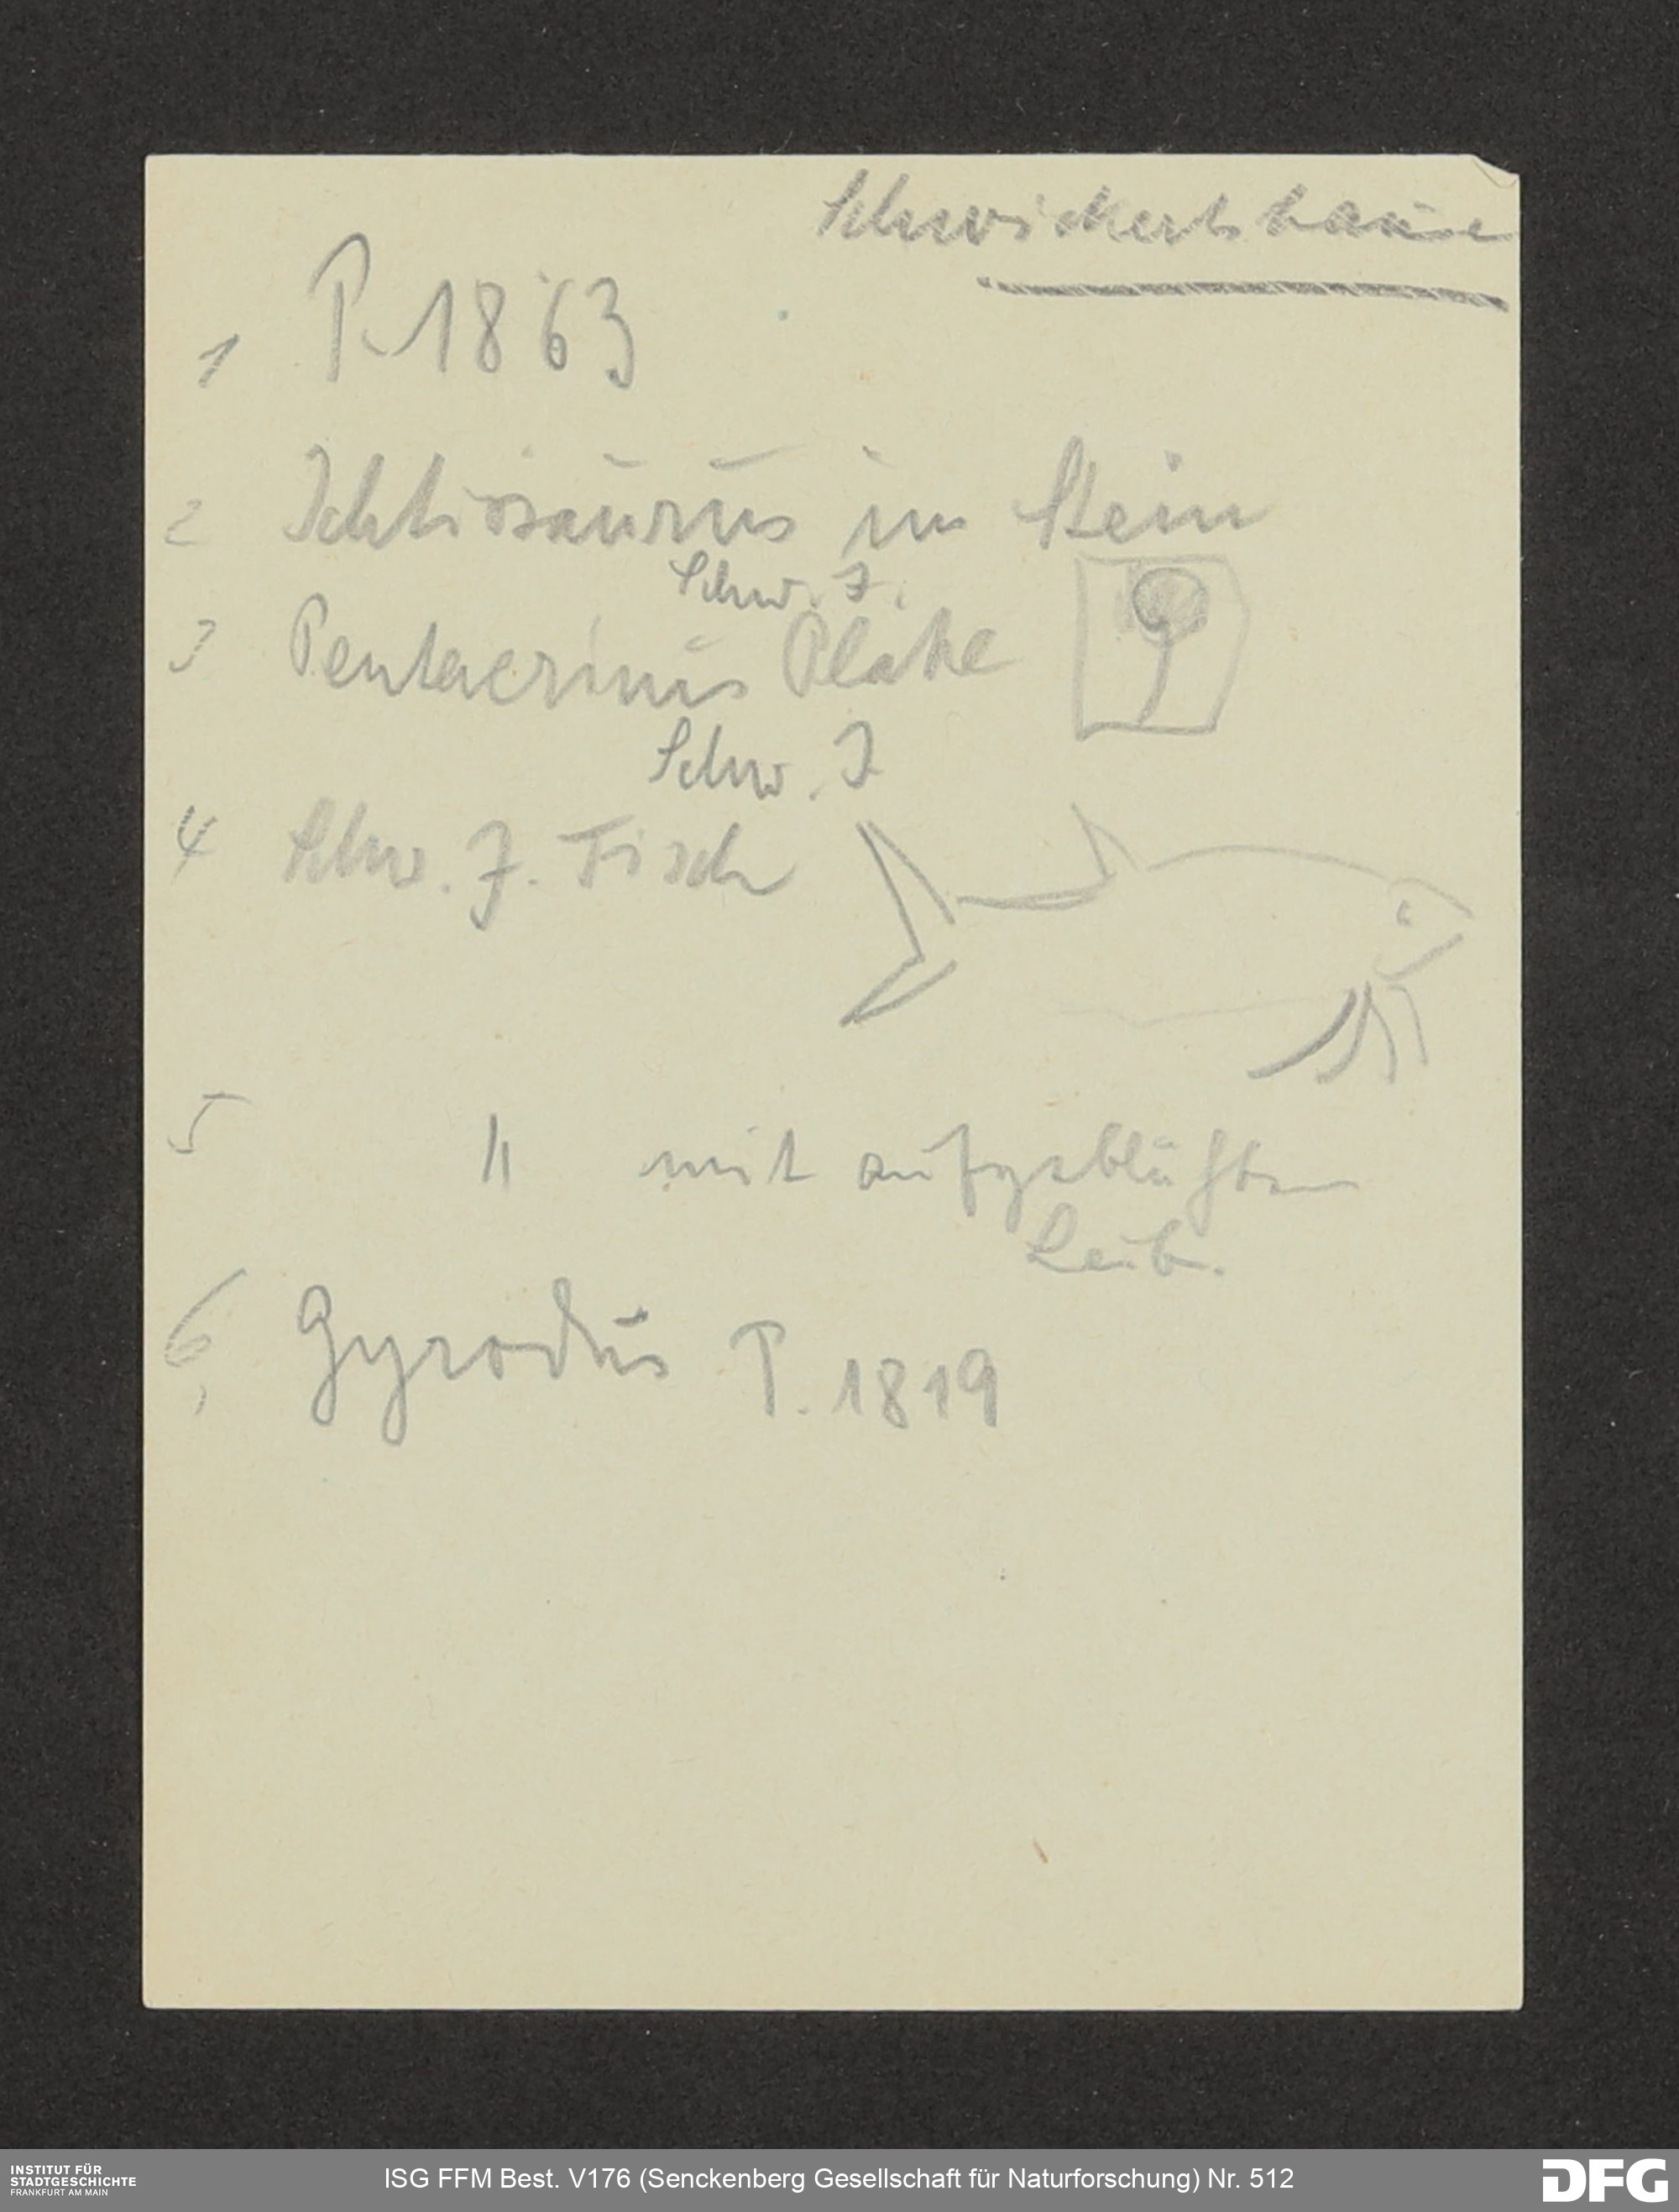 Schwickertshause
1 P. 1863
2 Ichtiosaurus im Stein
Schw. J.
3 Pentacrinus Platte
Schw. J
4 Schw. J. Fisch
5 " mit aufgeblähten
Leib.
6, Gyrodus P. 1819
INSTITUT FÜR
STADTGESCHICHTE
FRANKFURT AM MAIN
ISG FFM Best. V176 (Senckenberg Gesellschaft für Naturforschung) Nr. 512
DFG